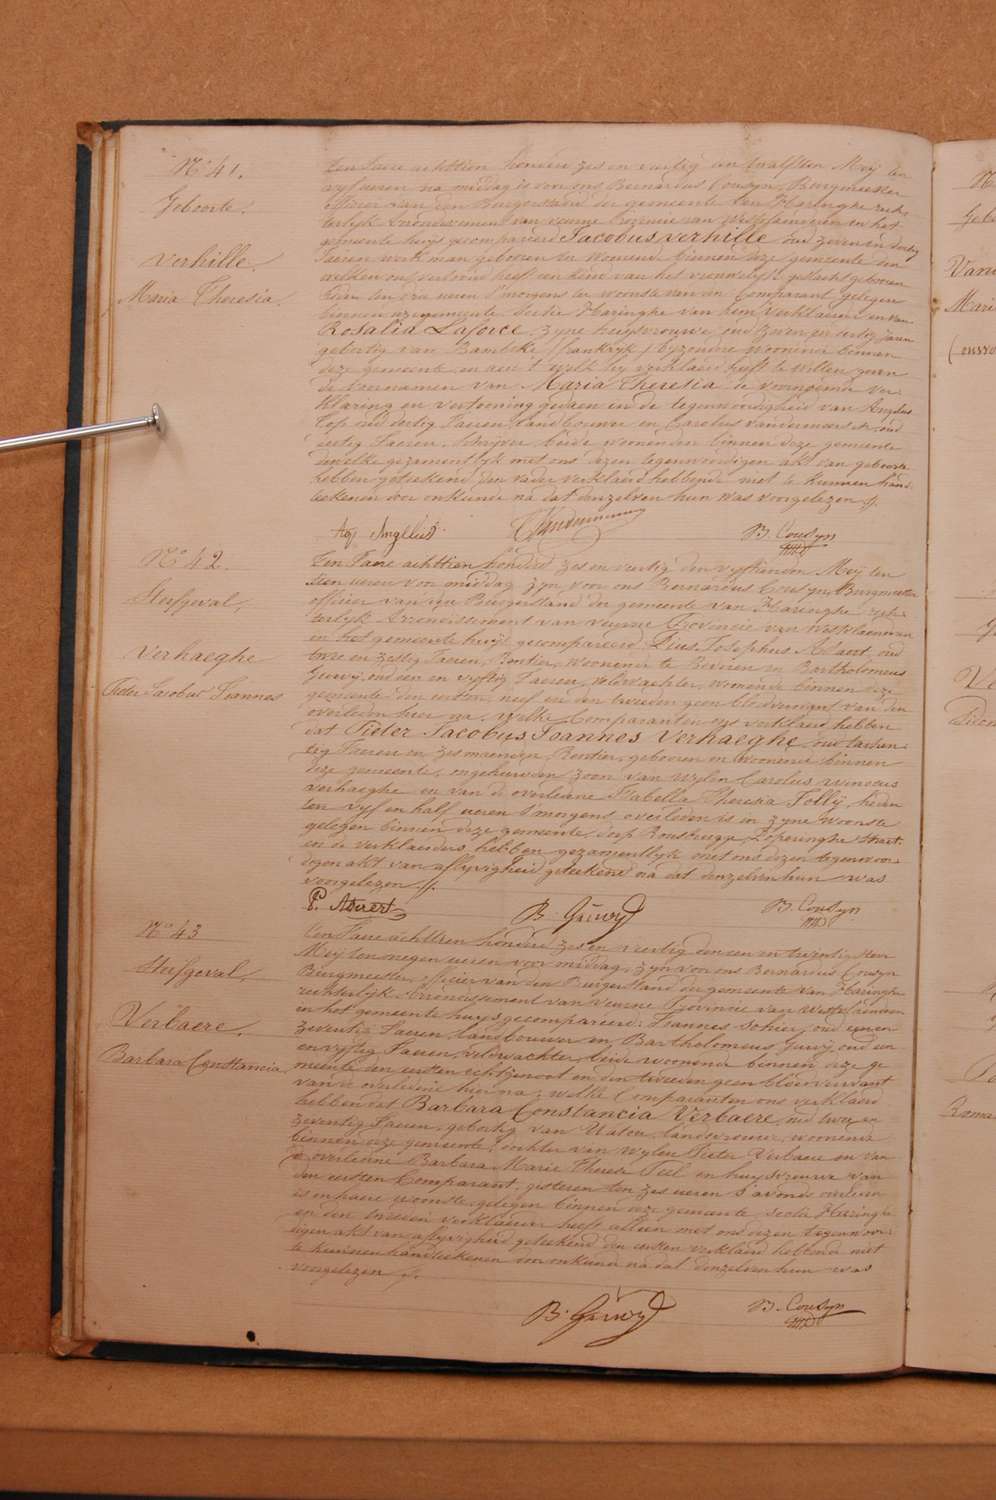 N° 41.
Geboorte.
Verhille.
Maria Theresia.
Ten Jaere achttien honderd zes en veertig den twalfsten Meij ten
vyf ueren na middag is voor ons Bernardus Cousyn, Burgmeester
officier van den Burgerstand der gemeente van Haringhe rech-
terlyk Arrondissement van veurne Provincie van Westvlaenderen in het
gemeente huys gecompareerd Jacobus verhille oud zeven en dertig
Jaeren werkman geboren en woonende binnen deze gemeente den
welken ons vertoond heeft een kind van het vrouwelyk geslacht geboren
heden ten dry ueren s'morgens ter woonste van den Comparant gelegen
binnen deze gemeente Sectie Haringhe van hem verklaerer en van
Rosalia Lajoice, zyne huysvrouwe oud zeven en dertig Jaeren
geboortig van Bambeke (frankryk) byzondre woonende binnen
deze gemeente en aen 't welk hy verklaerd heeft te willen geven
de voornamen van Maria Theresia de voornoemde ver-
klaring en vertooning gedaen in de tegenwoordigheid van Angelus
Top oud dertig Jaeren, landbouwer en Carolus vandermeersch, oud
veertig Jaeren, schryver beide woonende binnen deze gemeente
dewelke gezamentlyk met ons dezen tegenwoordigen akt van geboorte
hebben geteekend den vader verklaerd hebbende niet te kunnen hand-
teekenen door onkunde na dat denzelven hun was voorgelezen //.
Top Angelus B. Cousyn
N° 42.
Sterfgeval,
Verhaeghe
Pieter Jacobus Joannes
Ten Jaere achttien honderd zes en veertig den vyfthienden Meij ten
thien ueren voor middag zyn voor ons Bernardus Cousyn, Burgmeester
officier van den Burgerstand der gemeente van Haringhe rech-
terlyk Arrondissement van veurne Provincie van Westvlaenderen
in het gemeente huys gecompareerd Pius Josephus Alaert oud
twee en zestig Jaeren, Rentier, woonende te Beveren en Bartholomeus
Gruwij, oud een en vyftig Jaeren, veldwachter, woonende binnen deze
gemeente den eersten neef en den tweeden geen bloedverwant van den
overleden hier na, welke Comparanten ons verklaerd hebben
dat Pieter Jacobus Joannes Verhaeghe, oud
tig Jaeren en zes maenden, Rentier, geboren en woonende binnen
deze gemeente, ongehuwden zoon van wylen Carolus
verhaeghe en van de overledene Isabella Theresia Folly, heden
ten vyf en half ueren s'morgens overleden is in zyne woonste
gelegen binnen deze gemeente, dorp Rousbrugge, Poperinghe straet.
en de verklaerders hebben gezamentlyk met ons dezen tegenwoor-
digen akt van aflyvigheid geteekend na dat denzelven hun was
voorgelezen //.
P. B. Gruwij B. Cousyn
N° 43
Sterfgeval,
Verbaere.
Barbara Constancia.
Ten Jaere achttien honderd zes en veertig den een en twintigsten
Meij ten negen ueren voor middag, zyn voor ons Bernardus Cousyn
Burgmeester, officier van den Burgerstand der gemeente van Haringhe
rechterlyk Arrondissement van veurne Provincie van Westvlaenderen
in het gemeente huys gecompareerd: Joannes Schier, oud eenen
zeventig Jaeren, landbouwer en Bartholomeus Gruwij, oud een
en vyftig Jaeren, veldwachter, beide woonende binnen deze ge-
meente den eersten echtgenoot en den tweeden geen bloedverwant
van de overledene hier na; welke Comparanten ons verklaerd
hebben dat Barbara Constancia Verbaere, oud twee en
zeventig Jaeren, geboortig van Watou, landbouwer, woonende
binnen deze gemeente, dochter van wylen Pieter Verbaere en van
de overledene Barbara Marie Therese Peel en huysvrouwe van
den eersten Comparant, gisteren ten zes ueren s'avonds overleden
is in haere woonste gelegen binnen deze gemeente, sectie Haringhe
en den tweeden verklaerder heeft alleen met ons dezen tegenwoor-
digen akt van aflyvigheid geteekend den eersten verklaerd hebbende niet
te kunnen handteekenen door onkunde na dat denzelven hun was
voorgelezen //.
B. Gruwij B. Cousyn